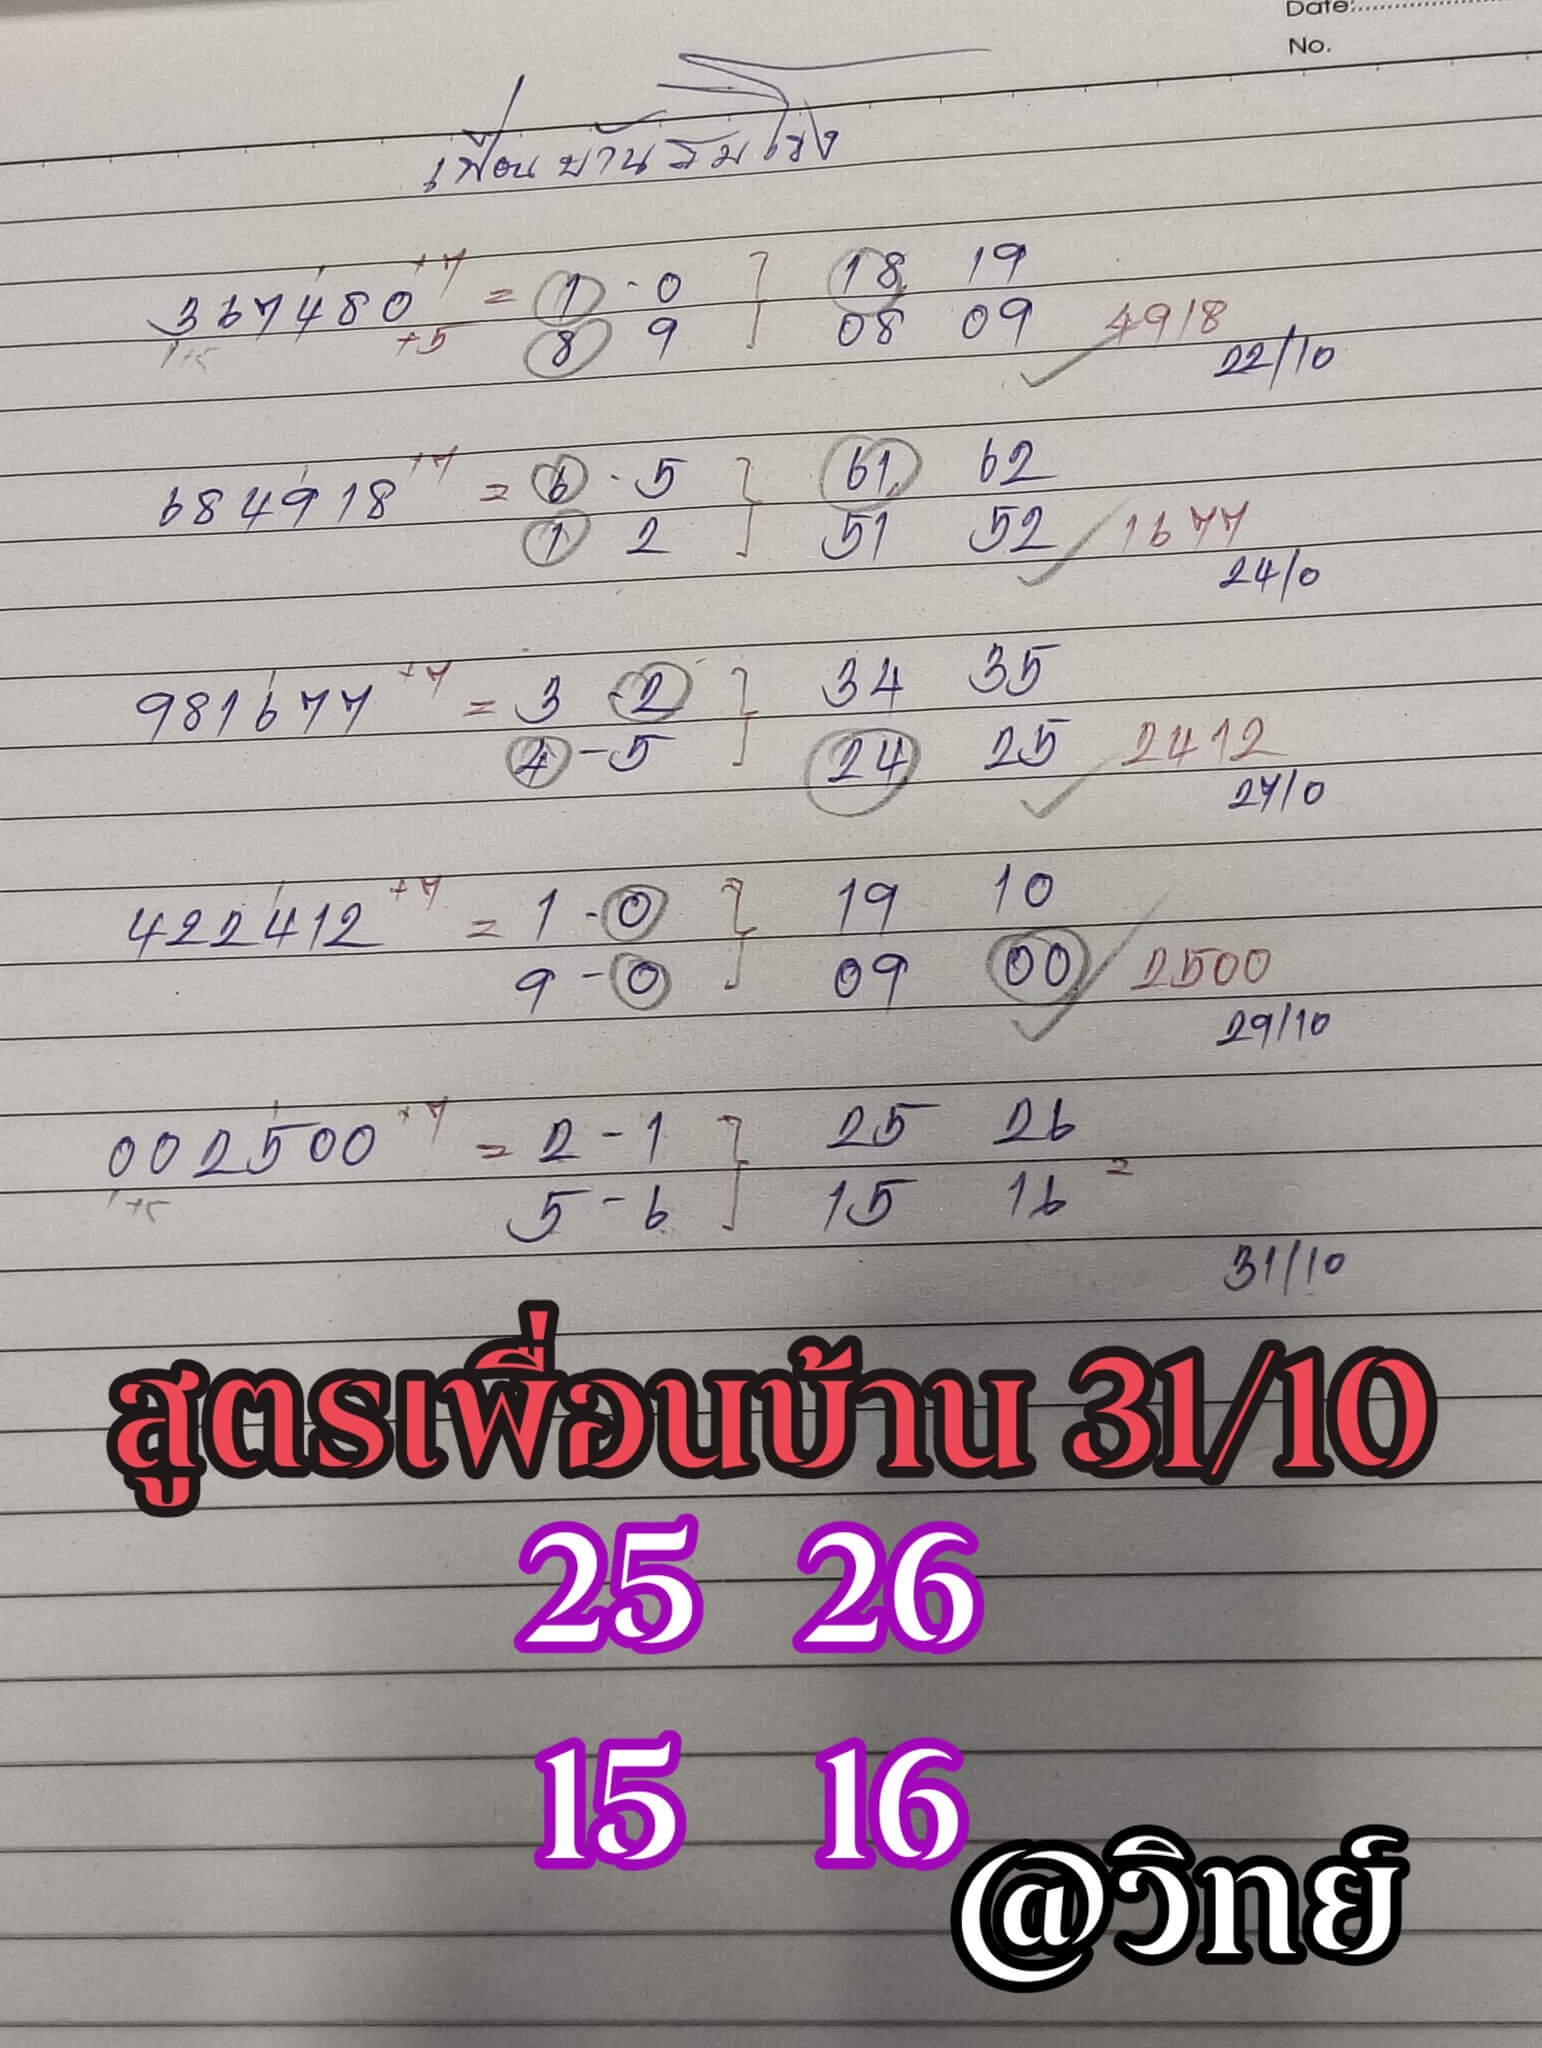 Date:
No.
เพื่อนบ้านริมโขง
367480 +7 = 1 - 0 } 18 19
+5 8 9 08 09 4918
22/10
684918 +7 = 6 - 5 } 61 62
1 2 51 52 1677
24/0
981677 +7 = 3 - 2 } 34 35
4 - 5 24 25 2412
27/0
422412 +7 = 1 - 0 } 19 10
9 - 0 09 00 2500
29/10
002500 +7 = 2 - 1 } 25 26
5 - 6 15 16 =
31/10
สูตรเพื่อนบ้าน 31/10
25 26
15 16
@วิทย์